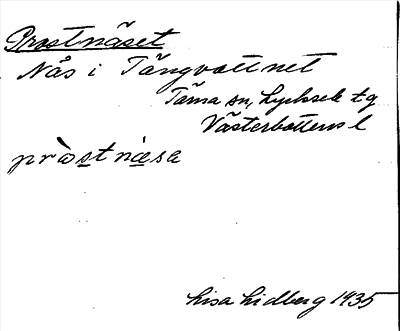 Prostnäset
Näs i Tängvattnet
Tärna sn, Lycksele tg
Västerbottens l
pròstnæsa
Lisa Lidberg 1935